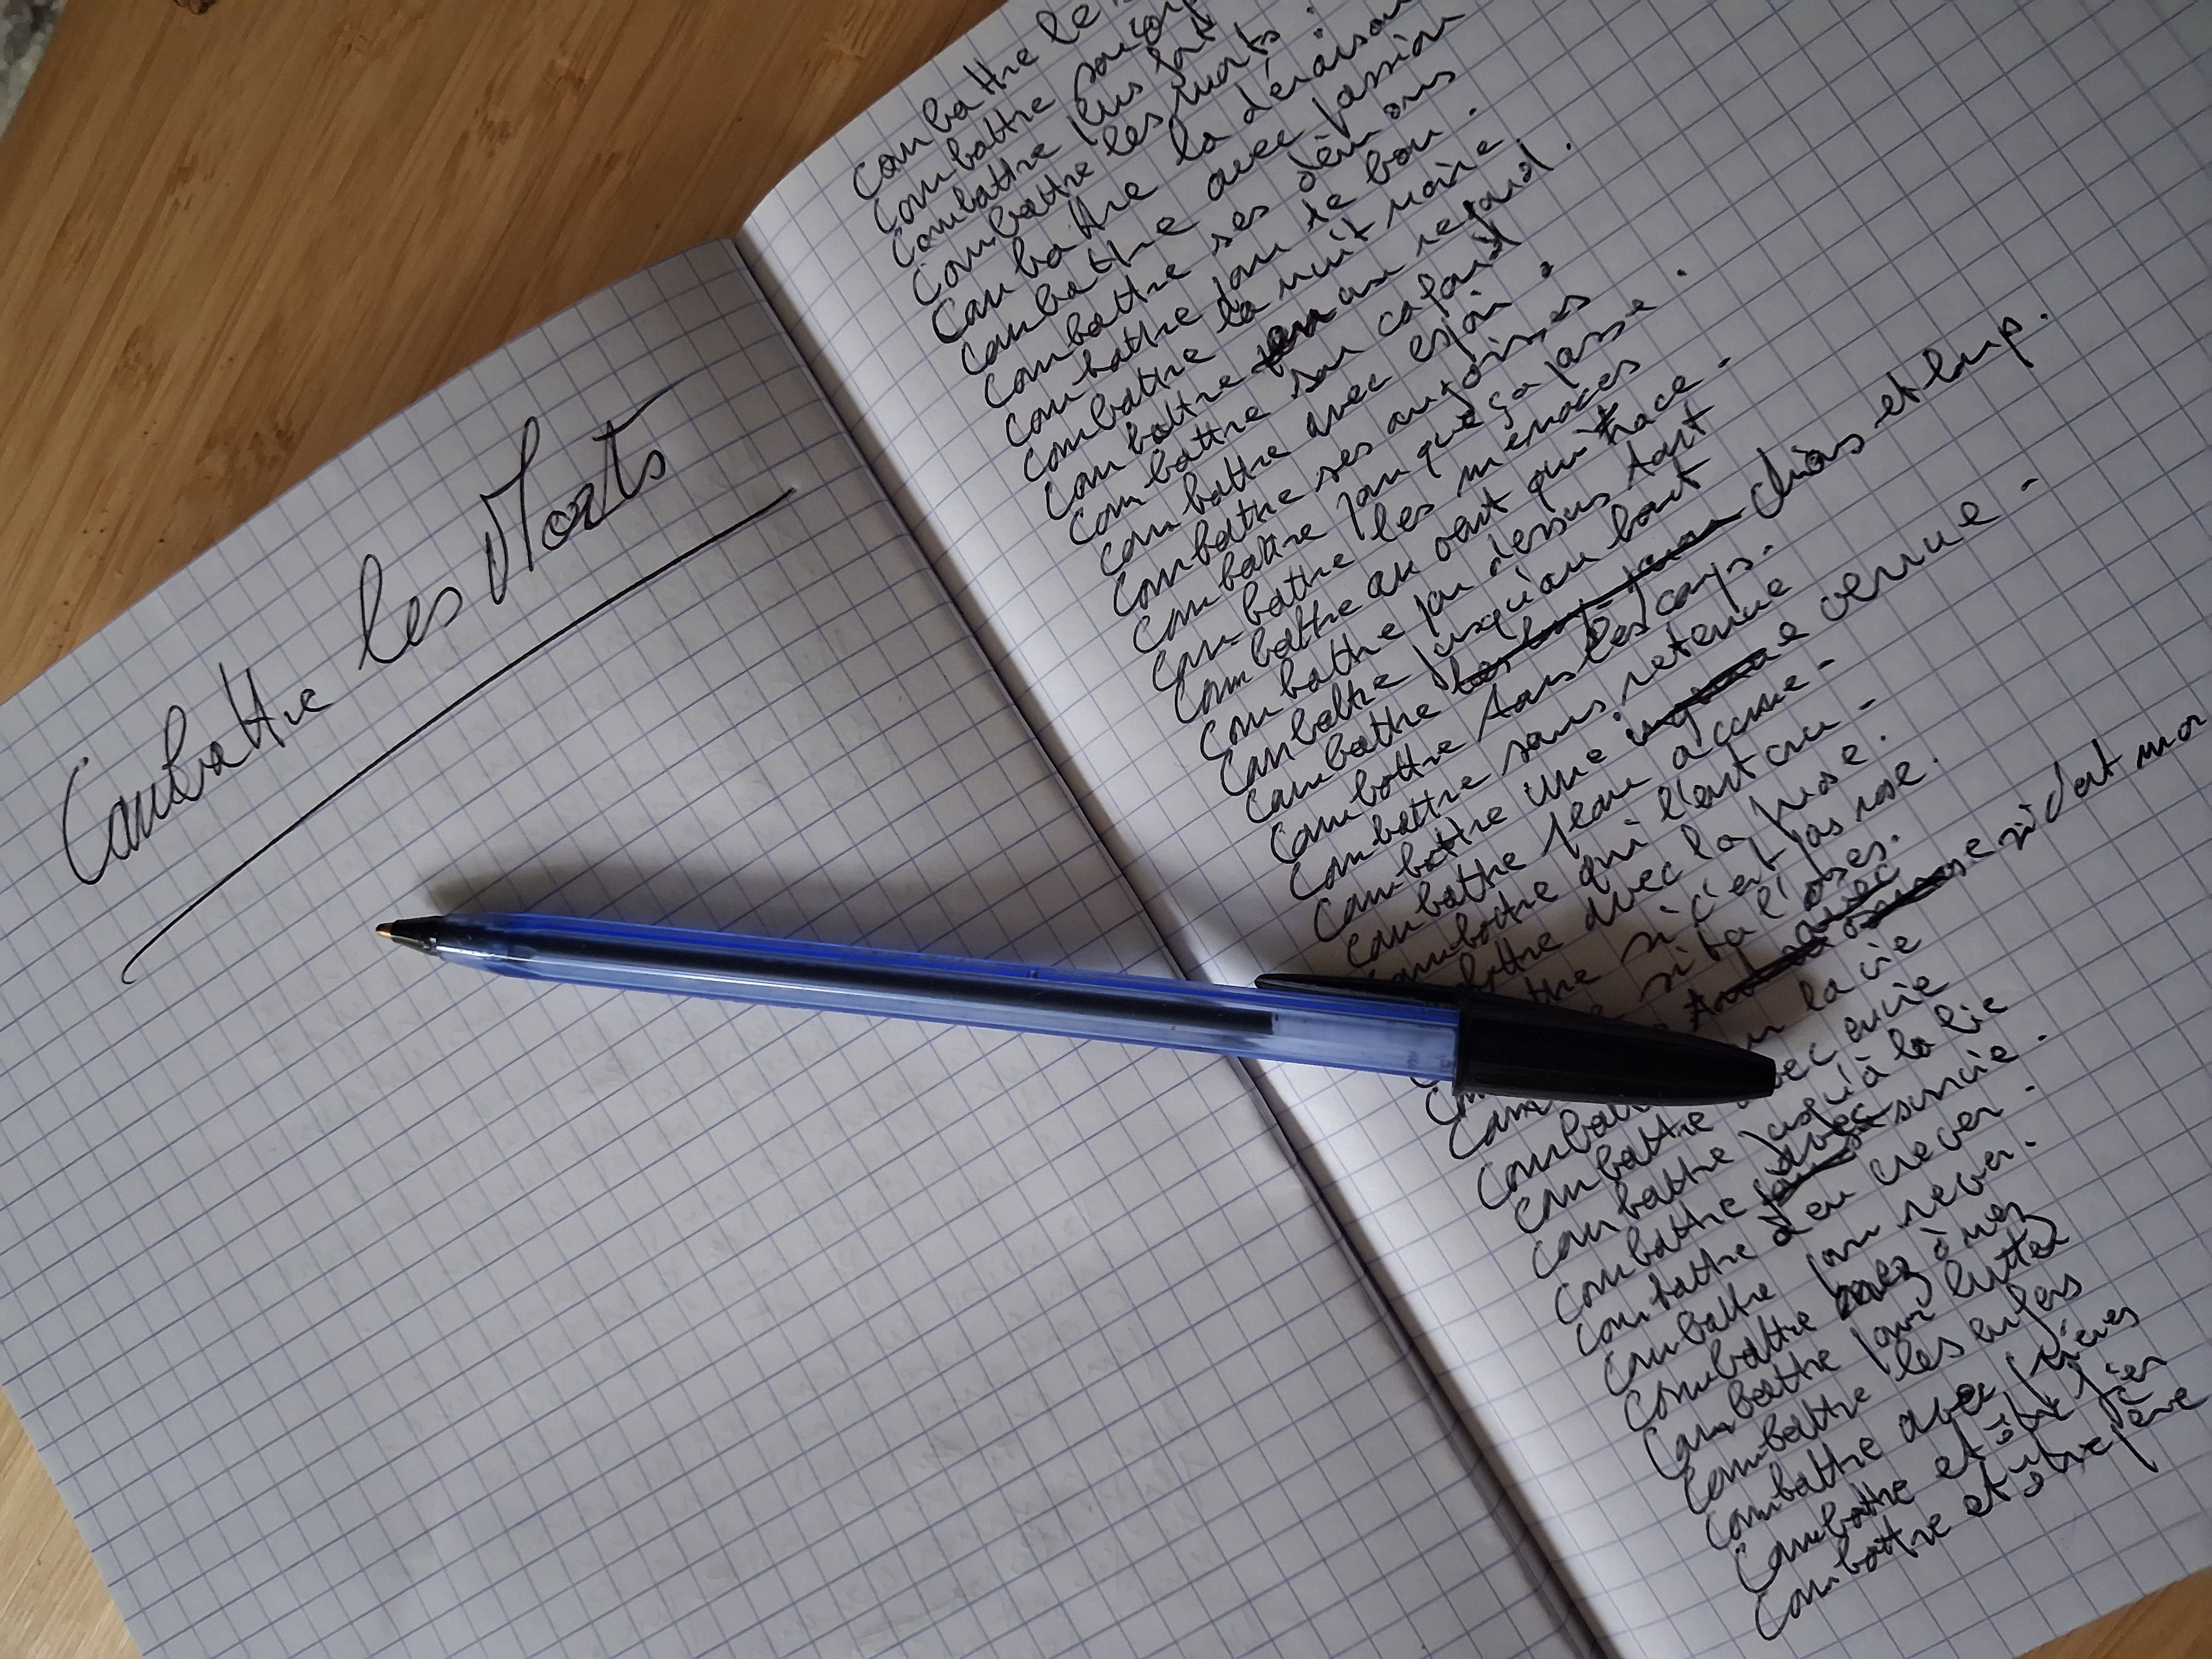 Combattre les Morts
Combattre le
Combattre
Combattre plus fort
Combattre les morts.
Combattre la déraison
Combattre avec passion
Combattre ses démons
Combattre pour le bon.
Combattre la nuit noire
Combattre au regard.
Combattre son cafard
Combattre avec espoir.
Combattre ses angoisses
Combattre pour que ça passe.
Combattre les menaces
Combattre au vent qui trace.
Combattre par dessus tout
Combattre jusqu'au bout
Combattre chiens et loup.
Combattre tous les coups.
Combattre sans retenue
Combattre une venue.
Combattre peau a
Combattre qui l'eut cru.
avec la prose.
si c'est pas rose.
si ta l'oses.
si dent mor
la vie
Combattre avec envie
Combattre jusqu'à la lie
Combattre survie.
Combattre à en crever.
Combattre pour rever.
Combattre nez à nez
Combattre pour lutter
Combattre les enfers
Combattre avec
Combattre et être fier
Combattre et être